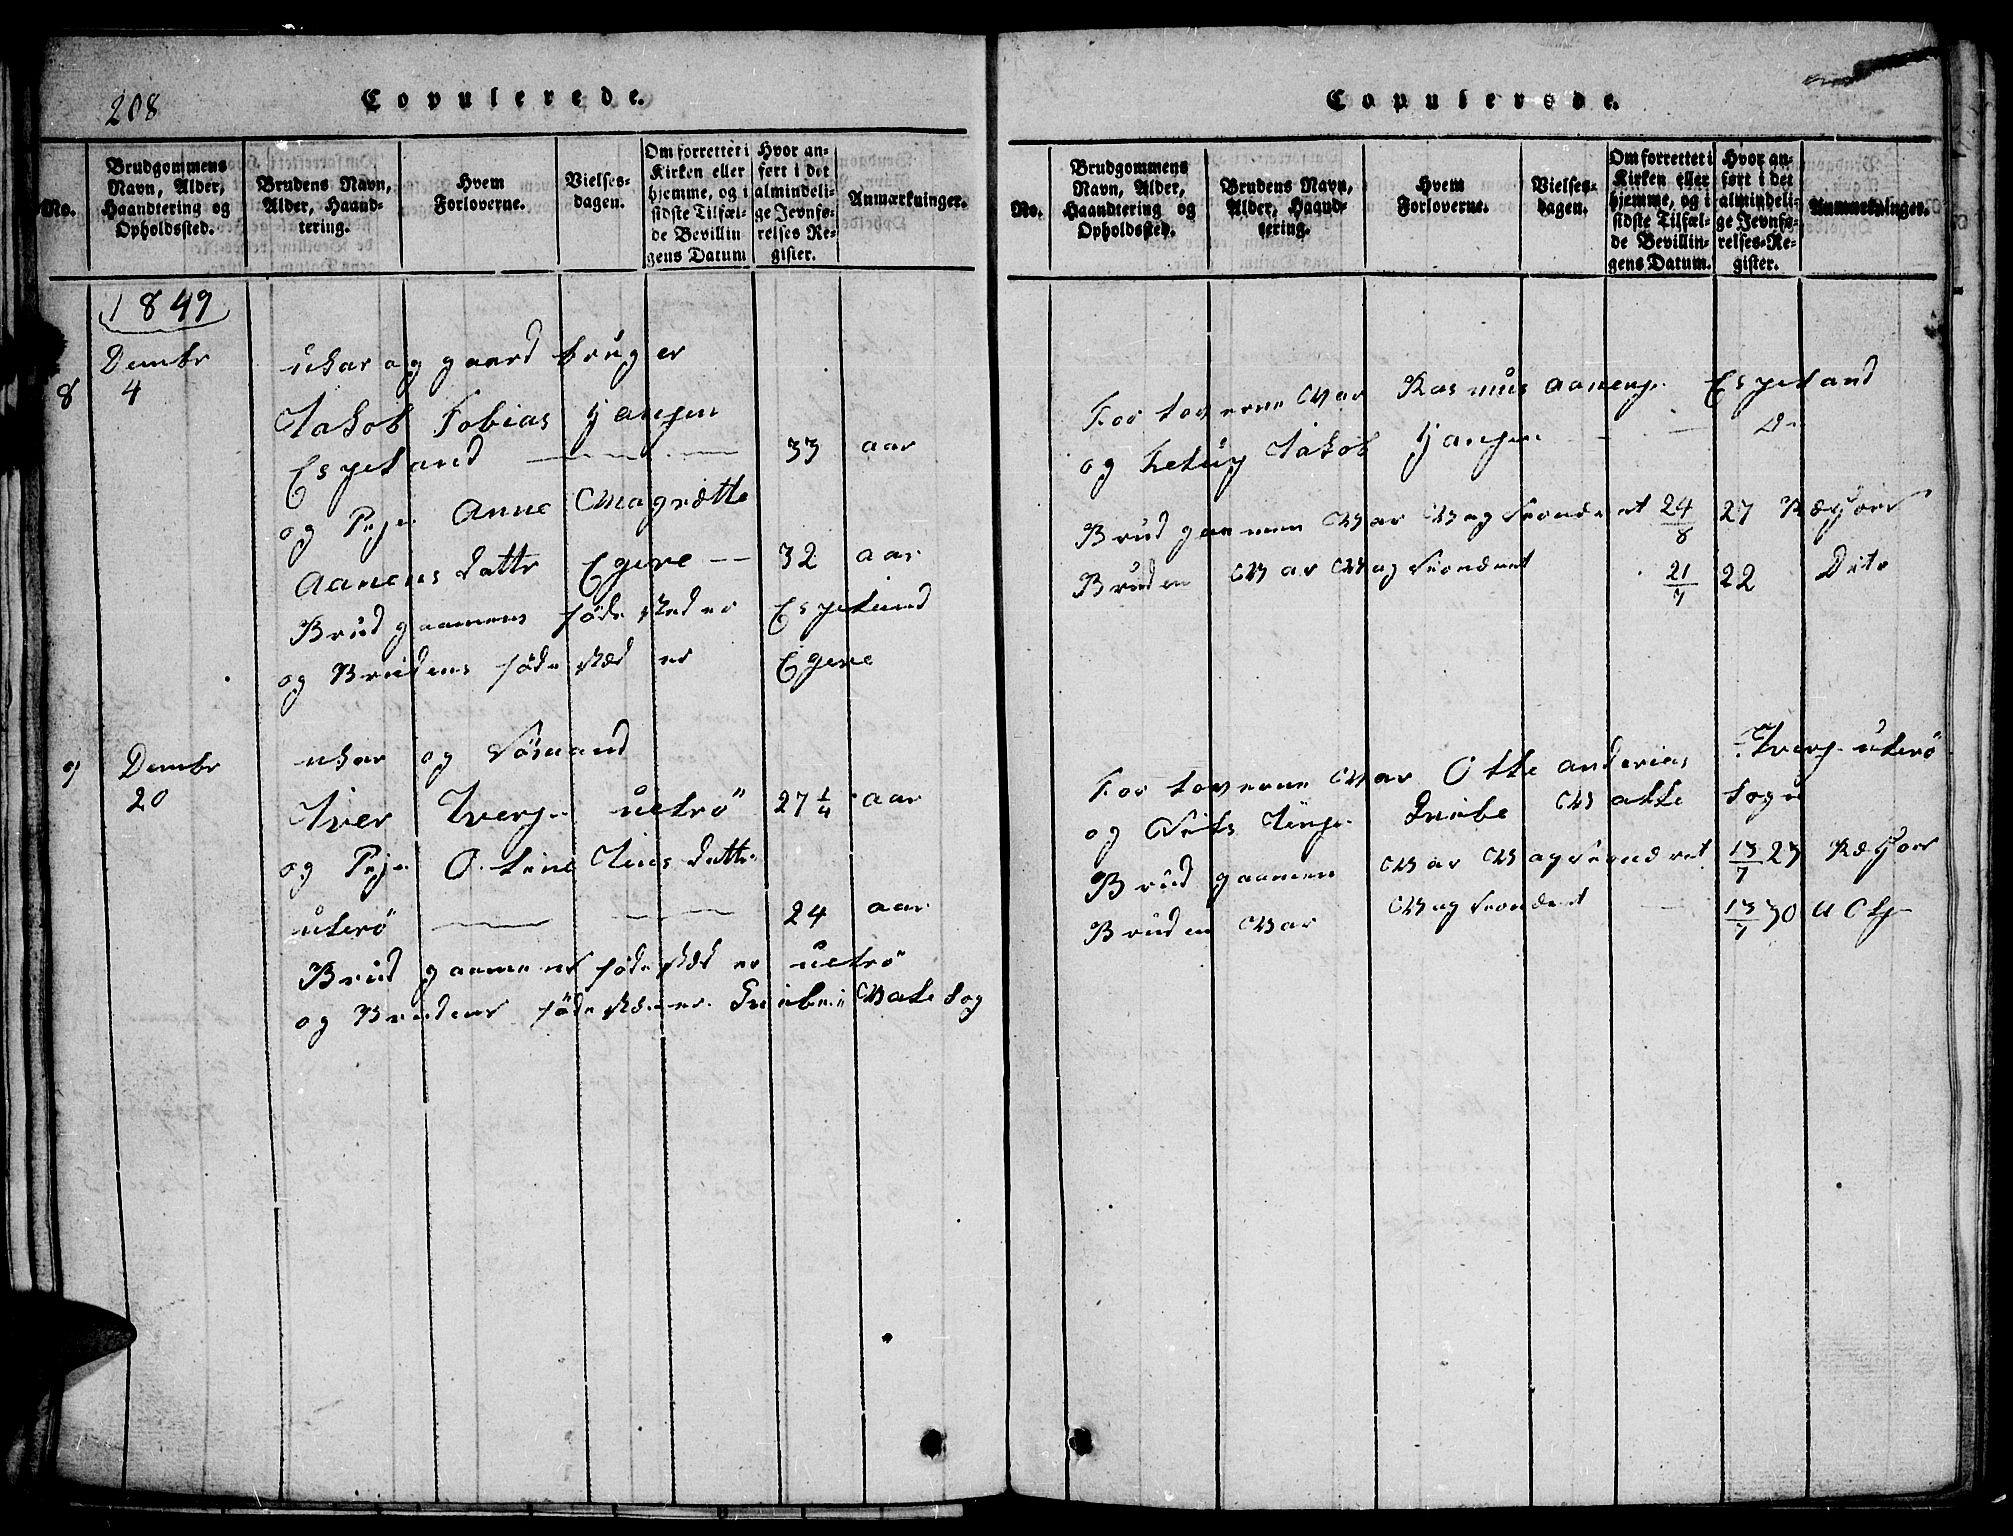 208
Copulerede.
No.
Brudgommens Navn, Alder, Haandtering og Opholdssted.
Brudens Navn, Alder, Haandtering.
Hvem Forloverne.
Vielsesdagen.
Om forrettet i Kirken eller hjemme, og i sidste Tilfælde Bevillingens Datum
Hvor anført i det almindelige Jevnførelses-Register.
Anmærkninger.
1849
8
Dembr
4
ukar og gaard bruger
Jakob Tobias Hansen
Espeland 33 aar
og Pige Anne Magrætte
Aanens datter Egere 32 aar
Brudgaamens føde sted er Espeland
og Brudens føde sted er Egere
9
Dembr
20
ukar og Søemand
Iver Iversen ueterø 27 1/4 aar
og Pige Otine Jens datter
uterø 24 aar
Brudgaamens føde sted er ueterø
og Brudens føde sted er i Valle sog
Copulerede.
No.
Brudgommens Navn, Alder, Haandtering og Opholdssted.
Brudens Navn, Alder, Haandtering.
Hvem Forloverne.
Vielsesdagen.
Om forrettet i Kirken eller hjemme, og i sidste Tilfælde Bevillingens Datum.
Hvor anført i det almindelige Jevnførelses-Register.
Anmærkninger.
Forloverne Var Rasmus Aanens. Espeland
og Jakob Hansen - - Do
Brudgaamen Var Vagsioneret 24/8 27
Bruden Var Vagsioneret 21/7 22 Dito
Forloverne Var Otte anderias Ivers. uterø
og Valle sogn
Brudgaamen Var Vagsioneret 13/7 23
Bruden Var Vagsioneret - 13/7 30